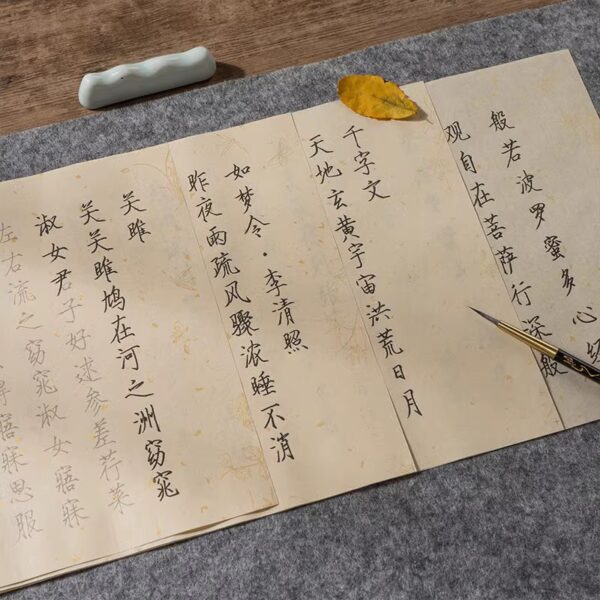 般若波罗蜜多心经
观自在菩萨行深般
千字文
天地玄黄宇宙洪荒日月
如梦令·李清照
昨夜雨疏风骤浓睡不消
关雎
关关雎鸠在河之洲窈窕
淑女君子好逑参差荇菜
左右流之窈窕淑女寤寐
得寤寐思服